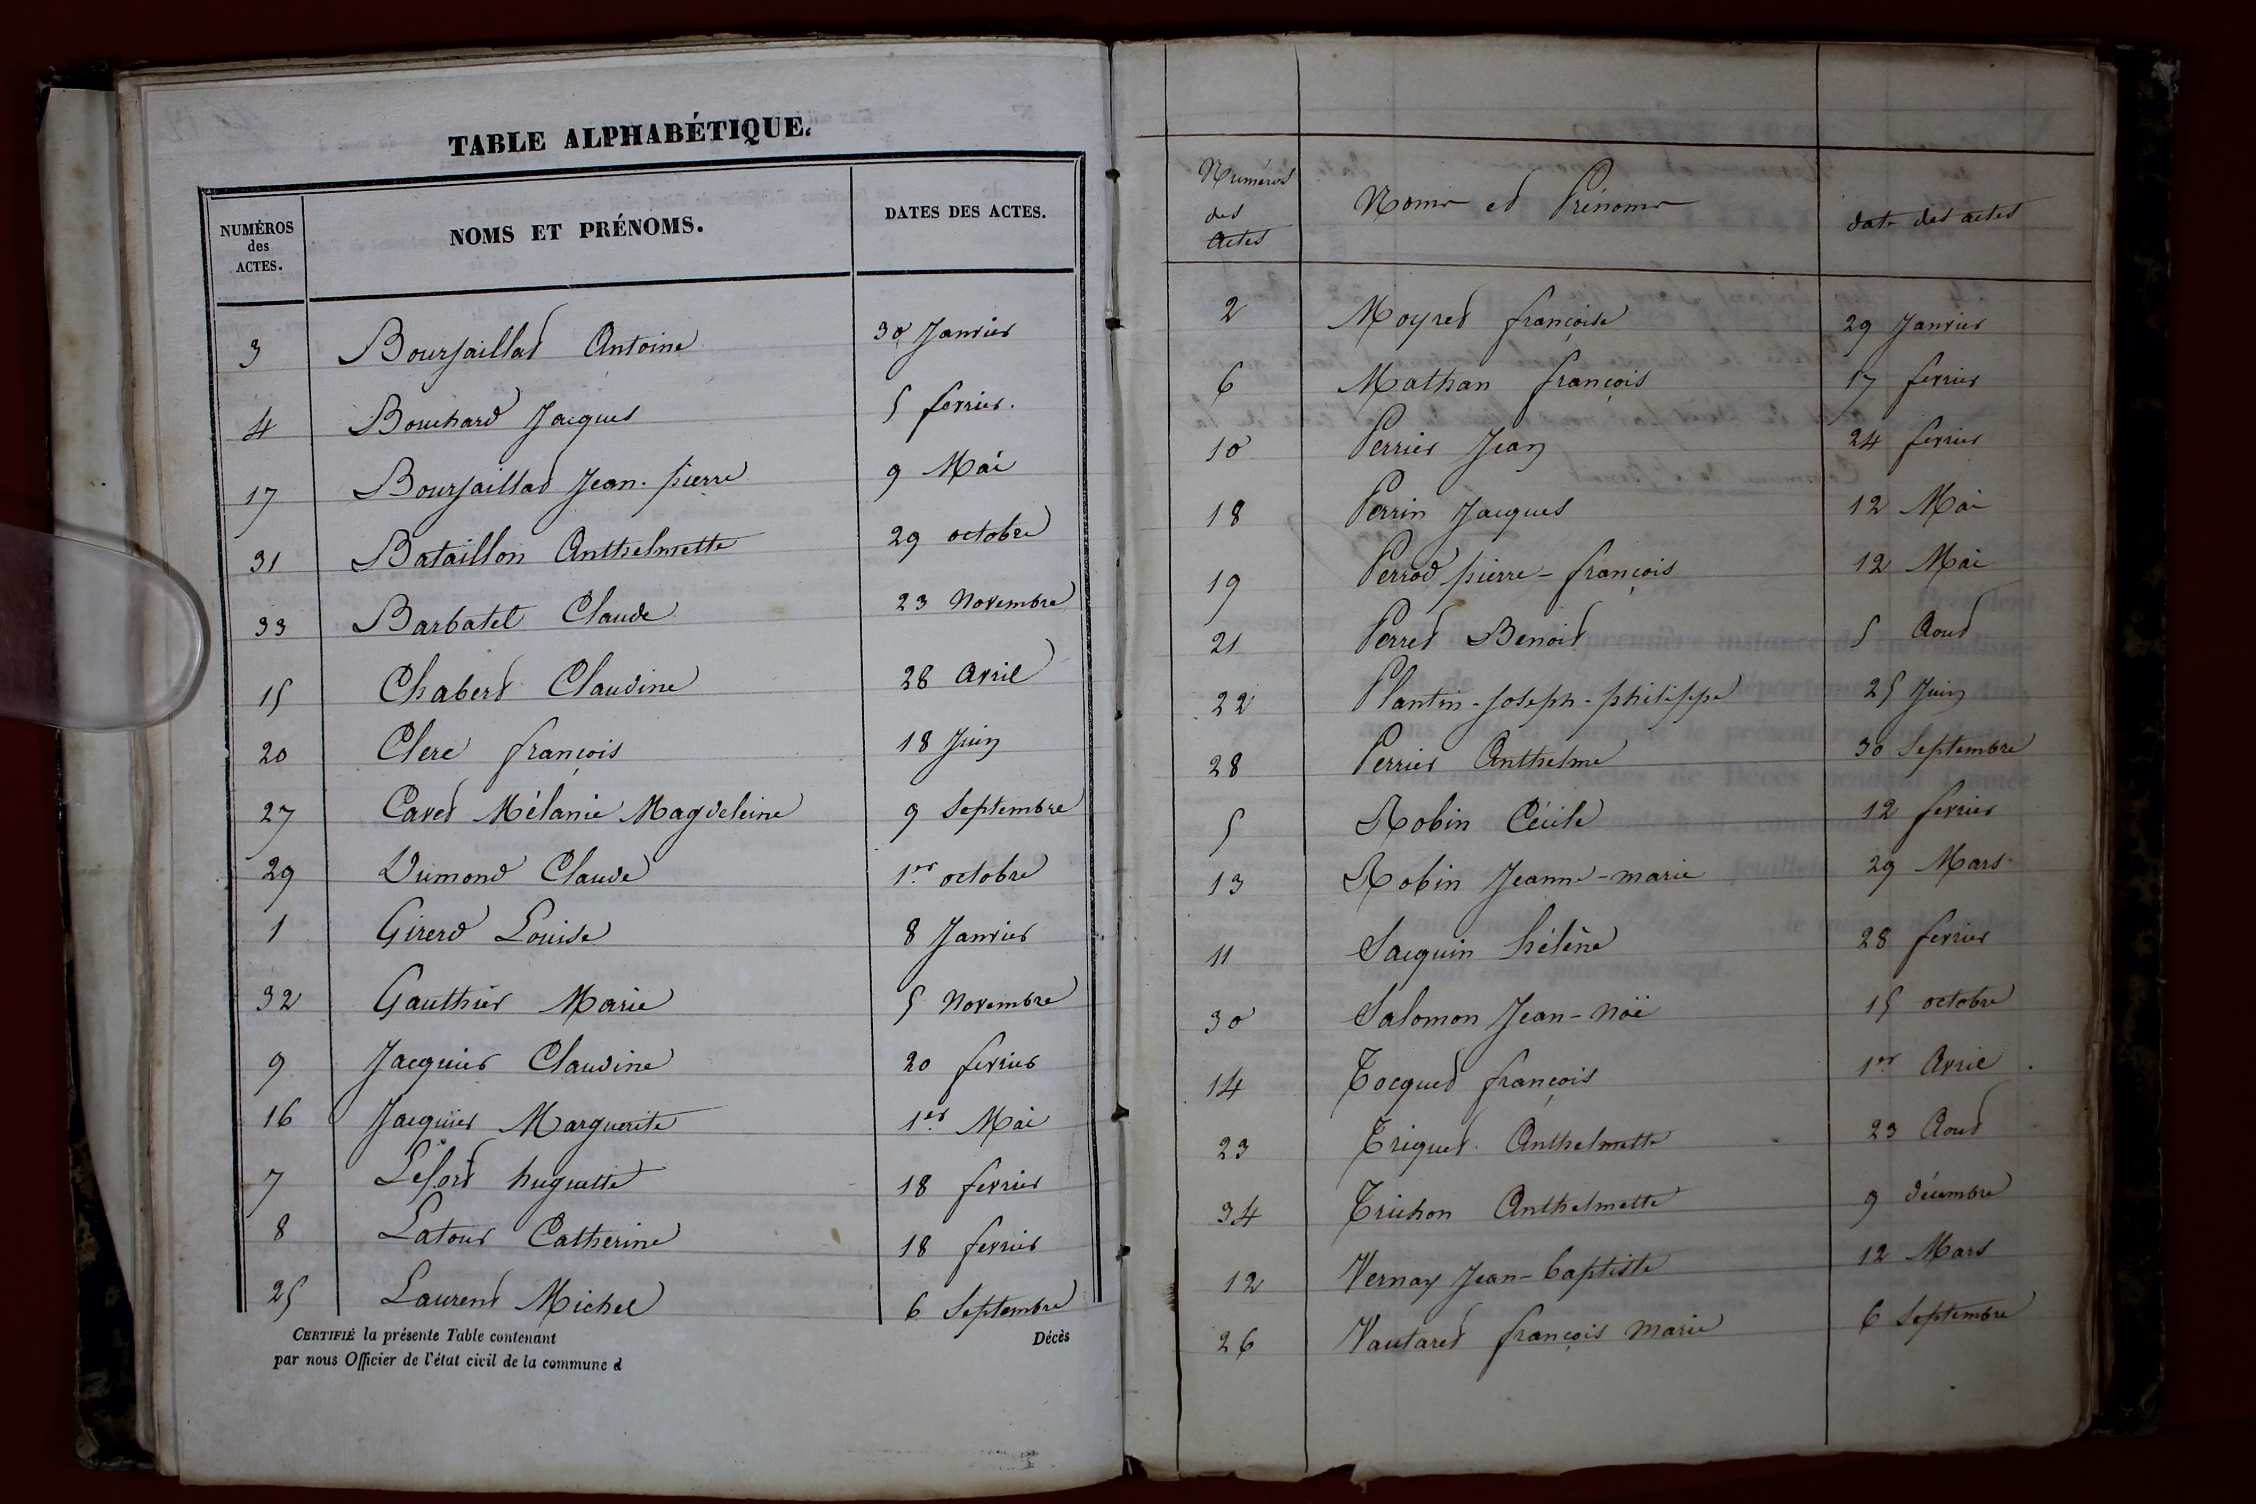 TABLE ALPHABÉTIQUE.
NUMÉROS des ACTES. NOMS ET PRÉNOMS. DATES DES ACTES.
3 Bourjaillat Antoine 30 Janvier
4 Bouchard Jacques 5 fevrier.
17 Bourjaillat Jean-pierre 9 Mai
31 Bataillon Anthelmette 29 octobre
33 Barbatet Claude 23 Novembre
15 Chabert Claudine 28 Avril
20 Clerc françois 18 Juin
27 Cavet Mélanie Magdeleine 9 Septembre
29 Dumond Claude 1er octobre
1 Girerd Louise 8 Janvier
32 Gauthier Marie 5 Novembre
9 Jacquier Claudine 20 fevrier
16 Jacquier Marguerite 1er Mai
7 Lefort huguette 18 fevrier
8 Latour Catherine 18 fevrier
25 Laurent Michel 6 Septembre
CERTIFIÉ la présente Table contenant Décès
par nous Officier de l'état civil de la commune d
Numéros des actes Noms et Prénoms date des actes
2 Moyret françoise 29 Janvier
6 Mathan françois 17 fevrier
10 Perrier Jean 24 fevrier
18 Perrin Jacques 12 Mai
19 Perrod pierre-françois 12 Mai
21 Perret Benoit 5 Aout
22 Plantin-joseph-philippe 25 Juin
28 Perrier Anthelme 30 Septembre
5 Robin Cécile 12 fevrier
13 Robin Jeanne-marie 29 Mars
11 Sacquin hélène 28 fevrier
30 Salomon Jean-Noë 15 octobre
14 Tocquet françois 1er Avril
23 Triquet Anthelmette 23 Aout
34 Trichon Anthelmette 9 décembre
12 Vernay Jean-baptiste 12 Mars
26 Vautaret françois marie 6 Septembre